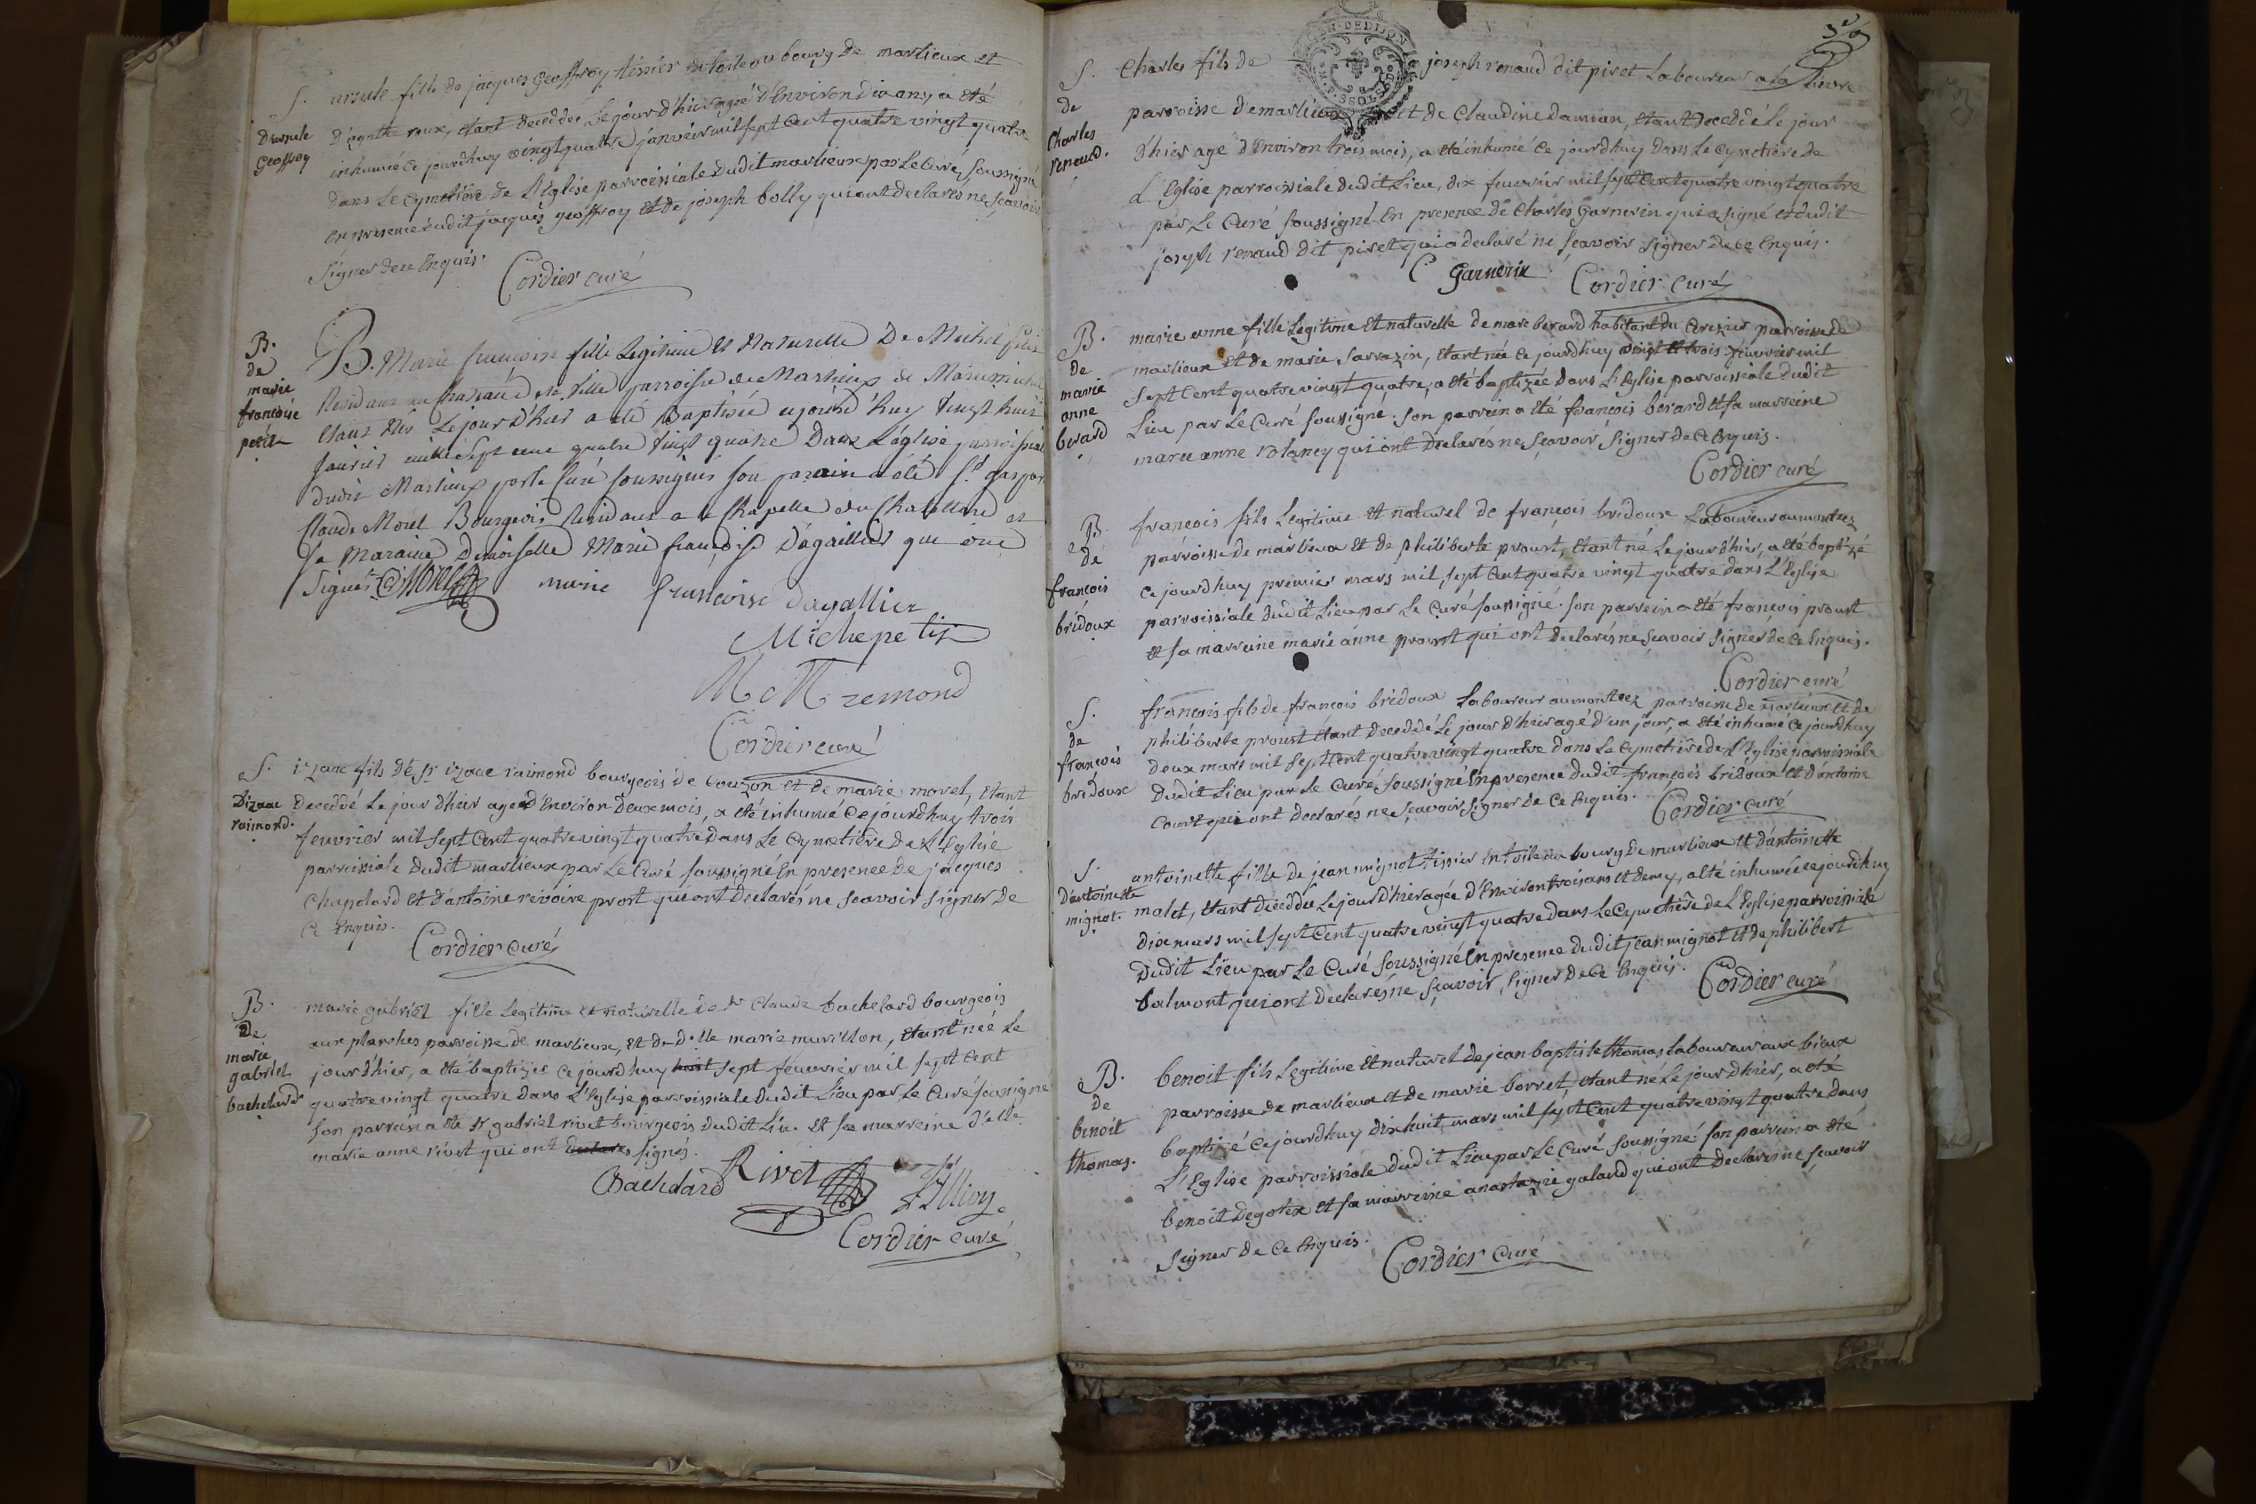 S.
D'ursule
Geoffroy
ursule fille de jacques Geoffroy tissier en toile au bourg de marlieux et
d'agathe roux, étant decedée Le jour d'hier agée d'Environ dix ans, a eté
inhumée Ce jourdhuy vingt quatre janvier mil sept Cent quatre vingt quatre
dans Le Cymetière de L'Eglise parroissiale dudit marlieux par Le Curé soussigné
En presence dudit jacques geoffroy et de joseph bolly qui ont declarés ne sçavoir
signer de ce Enquis.
Cordier curé
B.
de
marie
françoise
petit
B. Marie françoise fille Legitime et Naturelle De Michel petit
Residant au chateau de parroisse de Marlieux de
étant née Le jour d'hier a été Baptisée aujourd'huy vingt huit
janvier mille sept cent quatre vingt quatre Dans L'église parroissial
Dudit Marlieux par le Curé soussigné son parain a été Sr gaspar
Claude Morel Bourgeois Residant a la Chapelle du Chatelard et
sa Maraine Demoiselle Marie françoise Dagallier qui ont
Signés C. MOREL marie françoise dagallier
Miche petit
Remond
Cordier curé
S.
D'izaac
raimond.
izaac fils de sr izaac raimond bourgeois de bourgon et de marie morel, étant
Decedé Le jour d'hier agé d'Environ deux mois, a eté inhumé Ce jourdhuy trois
feuvrier mil sept Cent quatre vingt quatre dans Le Cymetière de L'Eglise
parroissiale dudit marlieux par Le Curé soussigné En presence de jacques
Chapolard et d'antoine revoire prost qui ont declarés ne sçavoir signer de
Ce Enquis.
Cordier curé
B.
De
marie
gabriel
bachelard
marie gabriel fille Legitime et naturelle de sr Claude bachelard bourgeois
aux planches parroisse de marlieux, et de d.lle marie murillon, étant née Le
jour d'hier, a été baptizée Ce jourdhuy huit sept feuvrier mil sept Cent
quatre vingt quatre dans L'Eglise parroissiale dudit Lieu par Le Curé soussigné
Son parrein a été sr gabriel rivet bourgeois dudit Lieu et sa marreine d.elle
marie anne rivet qui ont declarés signés.
Bachelard Rivet
Cordier curé
S.
de
Charles
renaud.
Charles fils de joseph renaud dit piret Laboureur a La
parroisse de marlieux et de Claudine Damian, étant decedé Le jour
d'hier agé d'Environ trois mois, a eté inhumé Ce jourdhuy dans Le Cymetière de
L'Eglise parroissiale dudit Lieu, dix feuvrier mil sept Cent quatre vingt quatre
par Le Curé soussigné En presence de Charles Garnerin qui a signé et dudit
joseph renaud dit piret qui a declaré ne sçavoir signer de Ce Enquis.
C Garnerin Cordier curé
B.
de
marie
anne
berard
marie anne fille Legitime et naturelle de marc berard habitant du Cerizier parroisse de
marlieux et de marie sarrazin, étant née Ce jourdhuy vingt et trois feuvrier mil
sept Cent quatre vingt quatre, a été baptizée dans L'Eglise parroissiale dudit
Lieu par Le Curé soussigné. Son parrein a été françois berard et sa marreine
marie anne blancy qui ont declarés ne sçavoir signer de Ce Enquis.
Cordier curé
B.
de
françois
bridoux
françois fils Legitime et naturel de françois bridoux Laboureur au montrez
parroisse de marlieux et de philiberte proust, étant né Le jour d'hier, a été baptizé
Ce jourdhuy premier mars mil sept Cent quatre vingt quatre dans L'Eglise
parroissiale dudit Lieu par Le Curé soussigné. Son parrein a été françois proust
et sa marreine marie anne proust qui ont declarés ne sçavoir signer de Ce Enquis.
Cordier curé
S.
de
françois
bridoux
françois fils de françois bridoux Laboureur au montrez parroisse de marlieux et de
philiberte proust étant decedé Le jour d'hier agé d'un jour, a eté inhumé Ce jourdhuy
deux mars mil sept Cent quatre vingt quatre dans Le Cymetière de L'Eglise parroissiale
Dudit Lieu par Le Curé soussigné En presence dudit françois bridoux et d'antoine
Court qui ont declarés ne sçavoir signer de Ce Enquis. Cordier curé
S.
D'antoinette
mignot.
antoinette fille de jean mignot tissier En toile au bourg de marlieux et d'antoinette
malet, étant decedée Le jour d'hier agée d'Environ trois ans et demy, a été inhumée Ce jourdhuy
dix mars mil sept Cent quatre vingt quatre dans Le Cymetière de L'Eglise parroissiale
Dudit Lieu par Le Curé soussigné En presence dudit jean mignot et de philibert
balmont qui ont declarés ne sçavoir signer de Ce Enquis. Cordier curé
B.
de
benoit
thomas.
benoit fils Legitime et naturel de jean baptiste thomas Laboureur aux bieux
parroisse de marlieux et de marie borret, étant né Le jour d'hier, a été
baptizé Ce jourdhuy dixhuit mars mil sept Cent quatre vingt quatre dans
L'Eglise parroissiale dudit Lieu par Le Curé soussigné. Son parrein a été
benoit degotex et sa marreine anastazie galand qui ont declarés ne sçavoir
signer de Ce Enquis.
Cordier curé